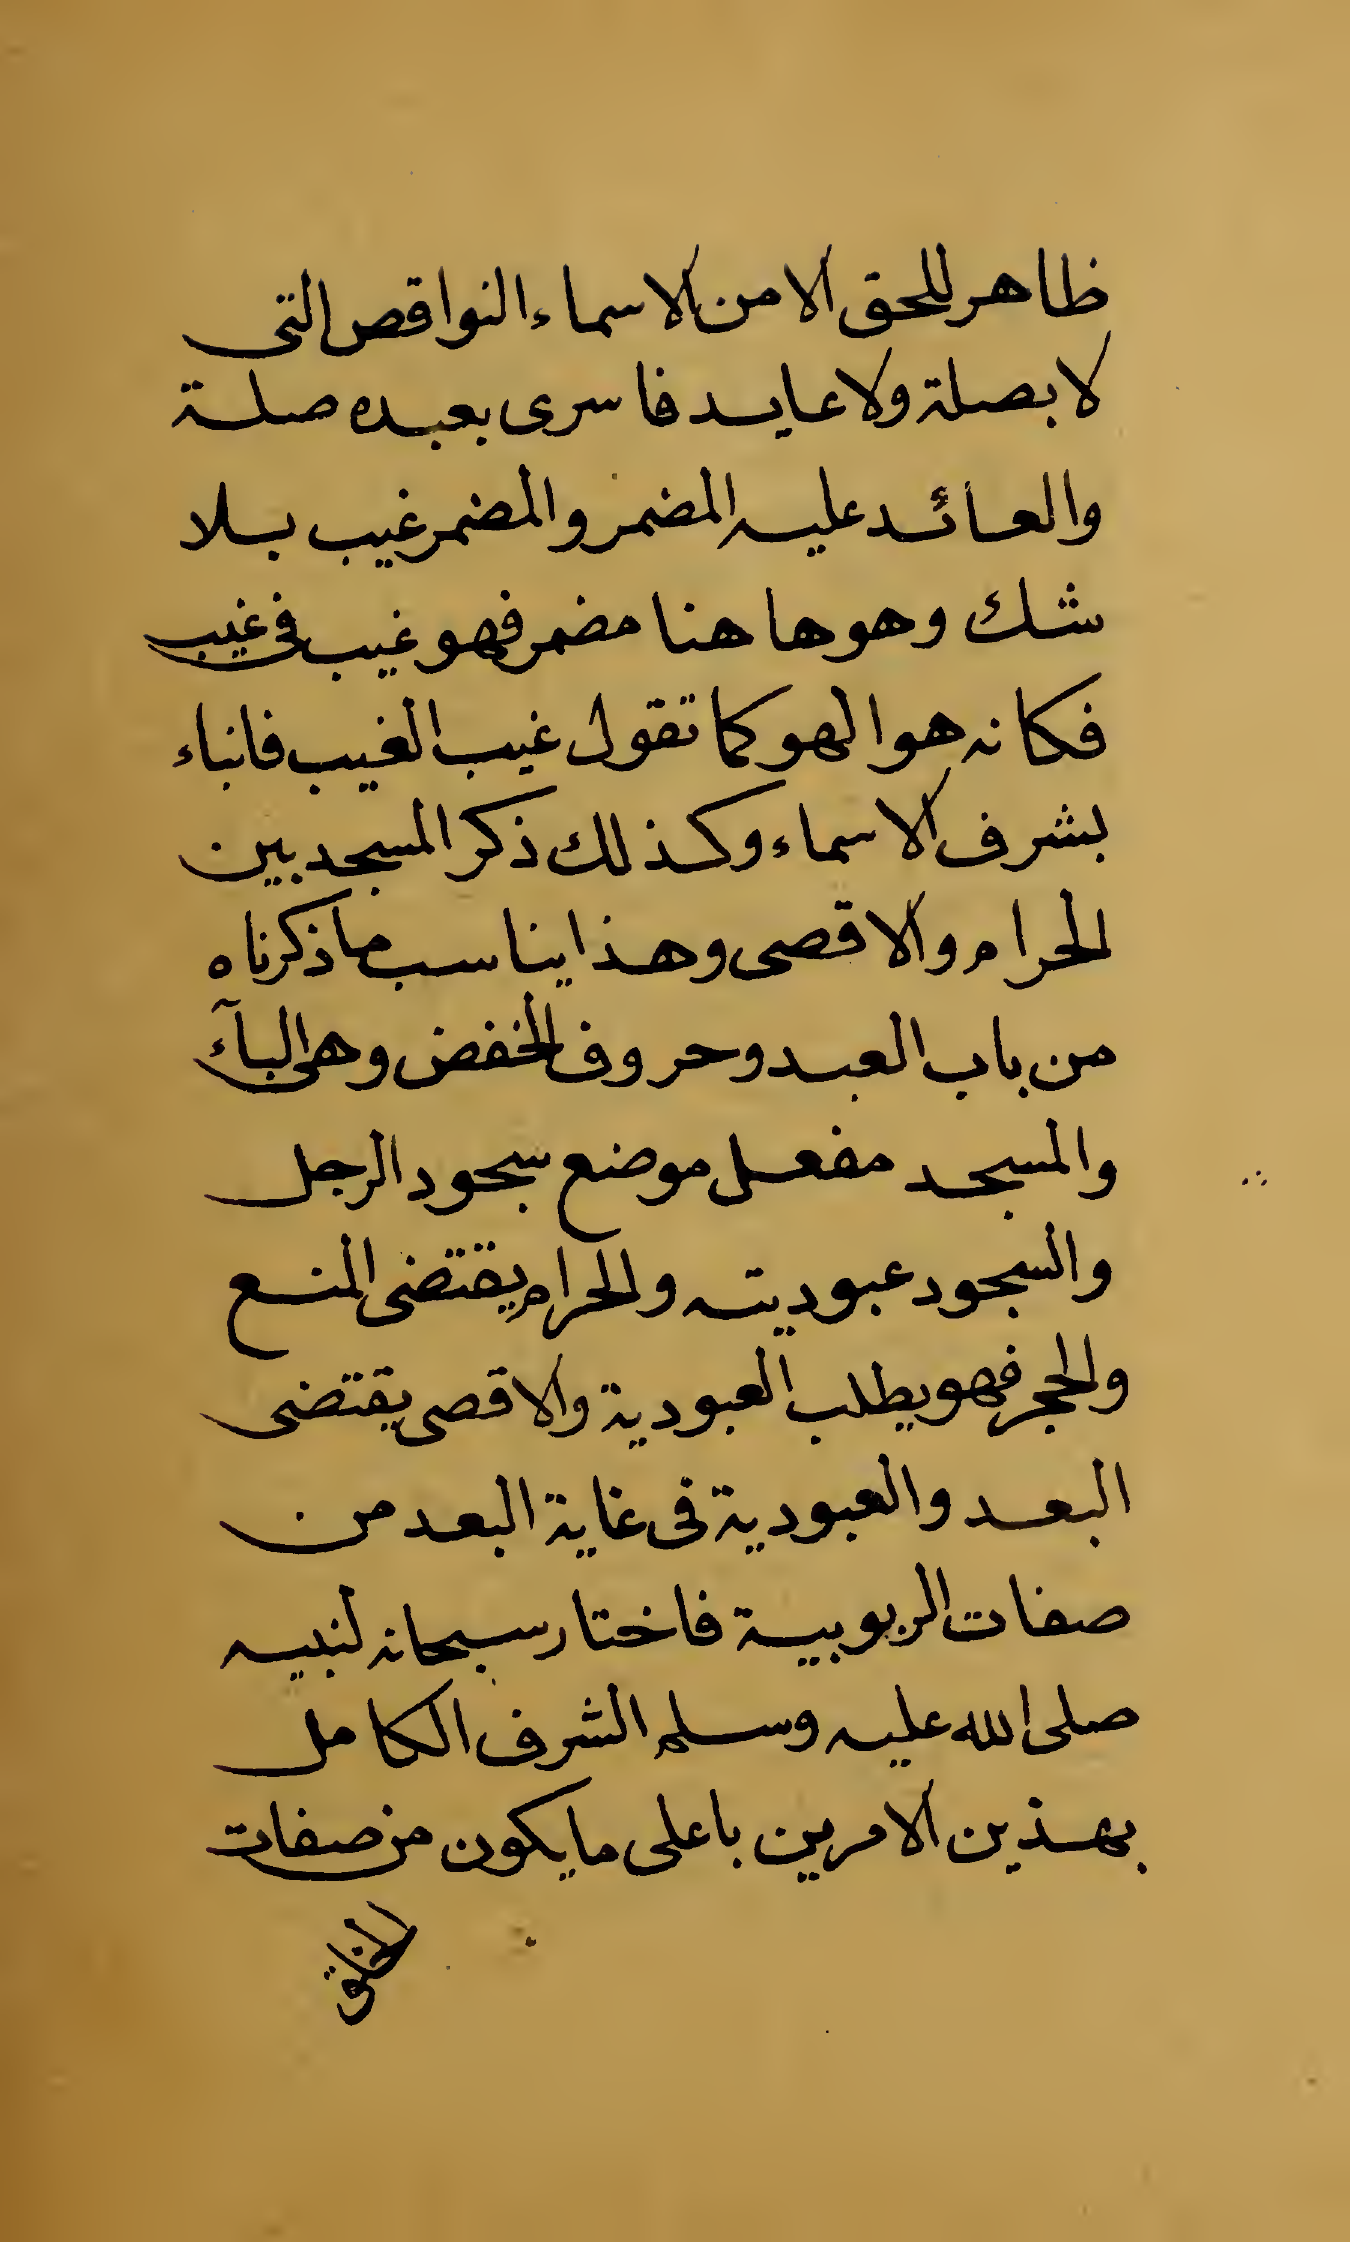 ظاهر للحق الا من الاسماء النواقص التي
لا بصلة ولا عايد فاسرى بعبده صلة
والعائد عليه المضمر والمضمر غيب بلا
شك وهو ها هنا مضمر فهو غيب في غيب
فكانه هو الهو كما تقول غيب الغيب فانباء
بشرف الاسماء وكذلك ذكر المسجد بين
الحرام والاقصى وهذا يناسب ما ذكرناه
من باب العبد وحروف الخفض وهى البآء
والمسجد مفعل موضع سجود الرجل
والسجود عبوديته والحرام يقتضى المنع
والحجر فهو يطلب العبودية والاقصى يقتضى
البعد والعبودية فى غاية البعد من
صفات الربوبية فاختار سبحانه لنبيه
صلى الله عليه وسلم الشرف الكامل
بهذين الامرين باعلى ما يكون من صفات
الخلق